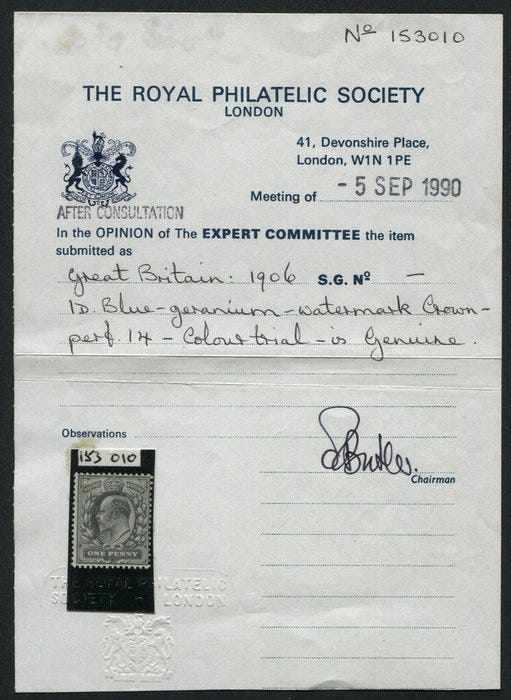 Nº 153010
THE ROYAL PHILATELIC SOCIETY
LONDON
41, Devonshire Place,
London, W1N 1PE
Meeting of - 5 SEP 1990
AFTER CONSULTATION
In the OPINION of The EXPERT COMMITTEE the item
submitted as
Great Britain: 1906 S.G. Nº —
1D. Blue-geranium - watermark Crown -
perf. 14 - Colour trial - is Genuine.
Observations
Butler.
Chairman
153 010
ONE PENNY
THE ROYAL PHILATELIC
SOCIETY LONDON